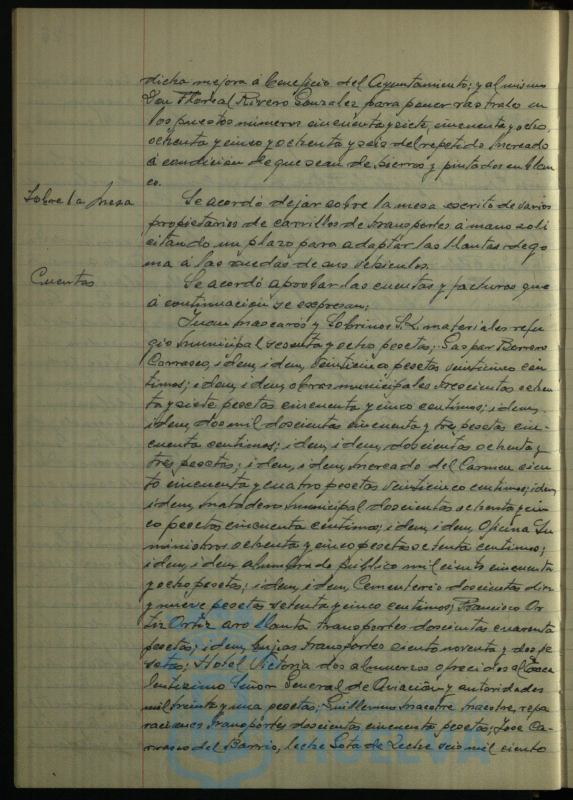 dicha mejora á beneficio del Ayuntamiento; y al mismo
Don Floreal Rivero Gonzalez para poner rastrales en
los puestos números cincuenta y siete, cincuenta y ocho,
ochenta y cinco y ochenta y seis del repetido Mercado
á condición de que sean de hierro y pintados en blan-
co.
Sobre la Mesa
Se acordó dejar sobre la mesa escrito de varios
propietarios de carrillos de transportes á mano soli
citando un plazo para adaptar las llantas de go
ma á las ruedas de sus vehículos.
Cuentas
Se acordó aprobar las cuentas y facturas que
á continuación se expresan;
Juan Mascarós y Sobrinos S.L. materiales refu-
gio municipal sesenta y ocho pesetas; Gaspar Borrero
Carrasco, idem, idem, veinticinco pesetas veinticinco cén
timos; idem, idem, obras municipales trescientas ochen
ta y siete pesetas cincuenta y cinco centimos; idem,
idem, dos mil doscientas cincuenta y tres pesetas cin-
cuenta centimos; idem, idem, doscientas ochenta y
tres pesetas; idem, idem, Mercado del Carmen cien
to cincuenta y cuatro pesetas veinticinco centimos; idem
idem, Matadero Municipal doscientas setenta y cin
co pesetas cincuenta centimos; idem, idem, Oficina Su
ministros ochenta y cinco pesetas setenta centimos;
idem, idem, alumbrado público mil ciento cincuenta
y ocho pesetas; idem, idem, Cementerio doscientas diez
y nueve pesetas setenta y cinco centimos; Francisco Or
tiz Ortiz aro llanta transportes doscientas cuarenta
pesetas; idem, bujias transportes ciento noventa y dos pe
setas; Hotel Victoria dos almuerzos ofrecidos al Exce
lentisimo Señor General de Aviación y autoridades
mil treinta y una pesetas; Guillermo Macorra Macorra, repa
raciones transportes doscientas cincuenta pesetas; José Ca-
rrasco del Barrio, leche Gota de Leche seis mil ciento
HUELVA